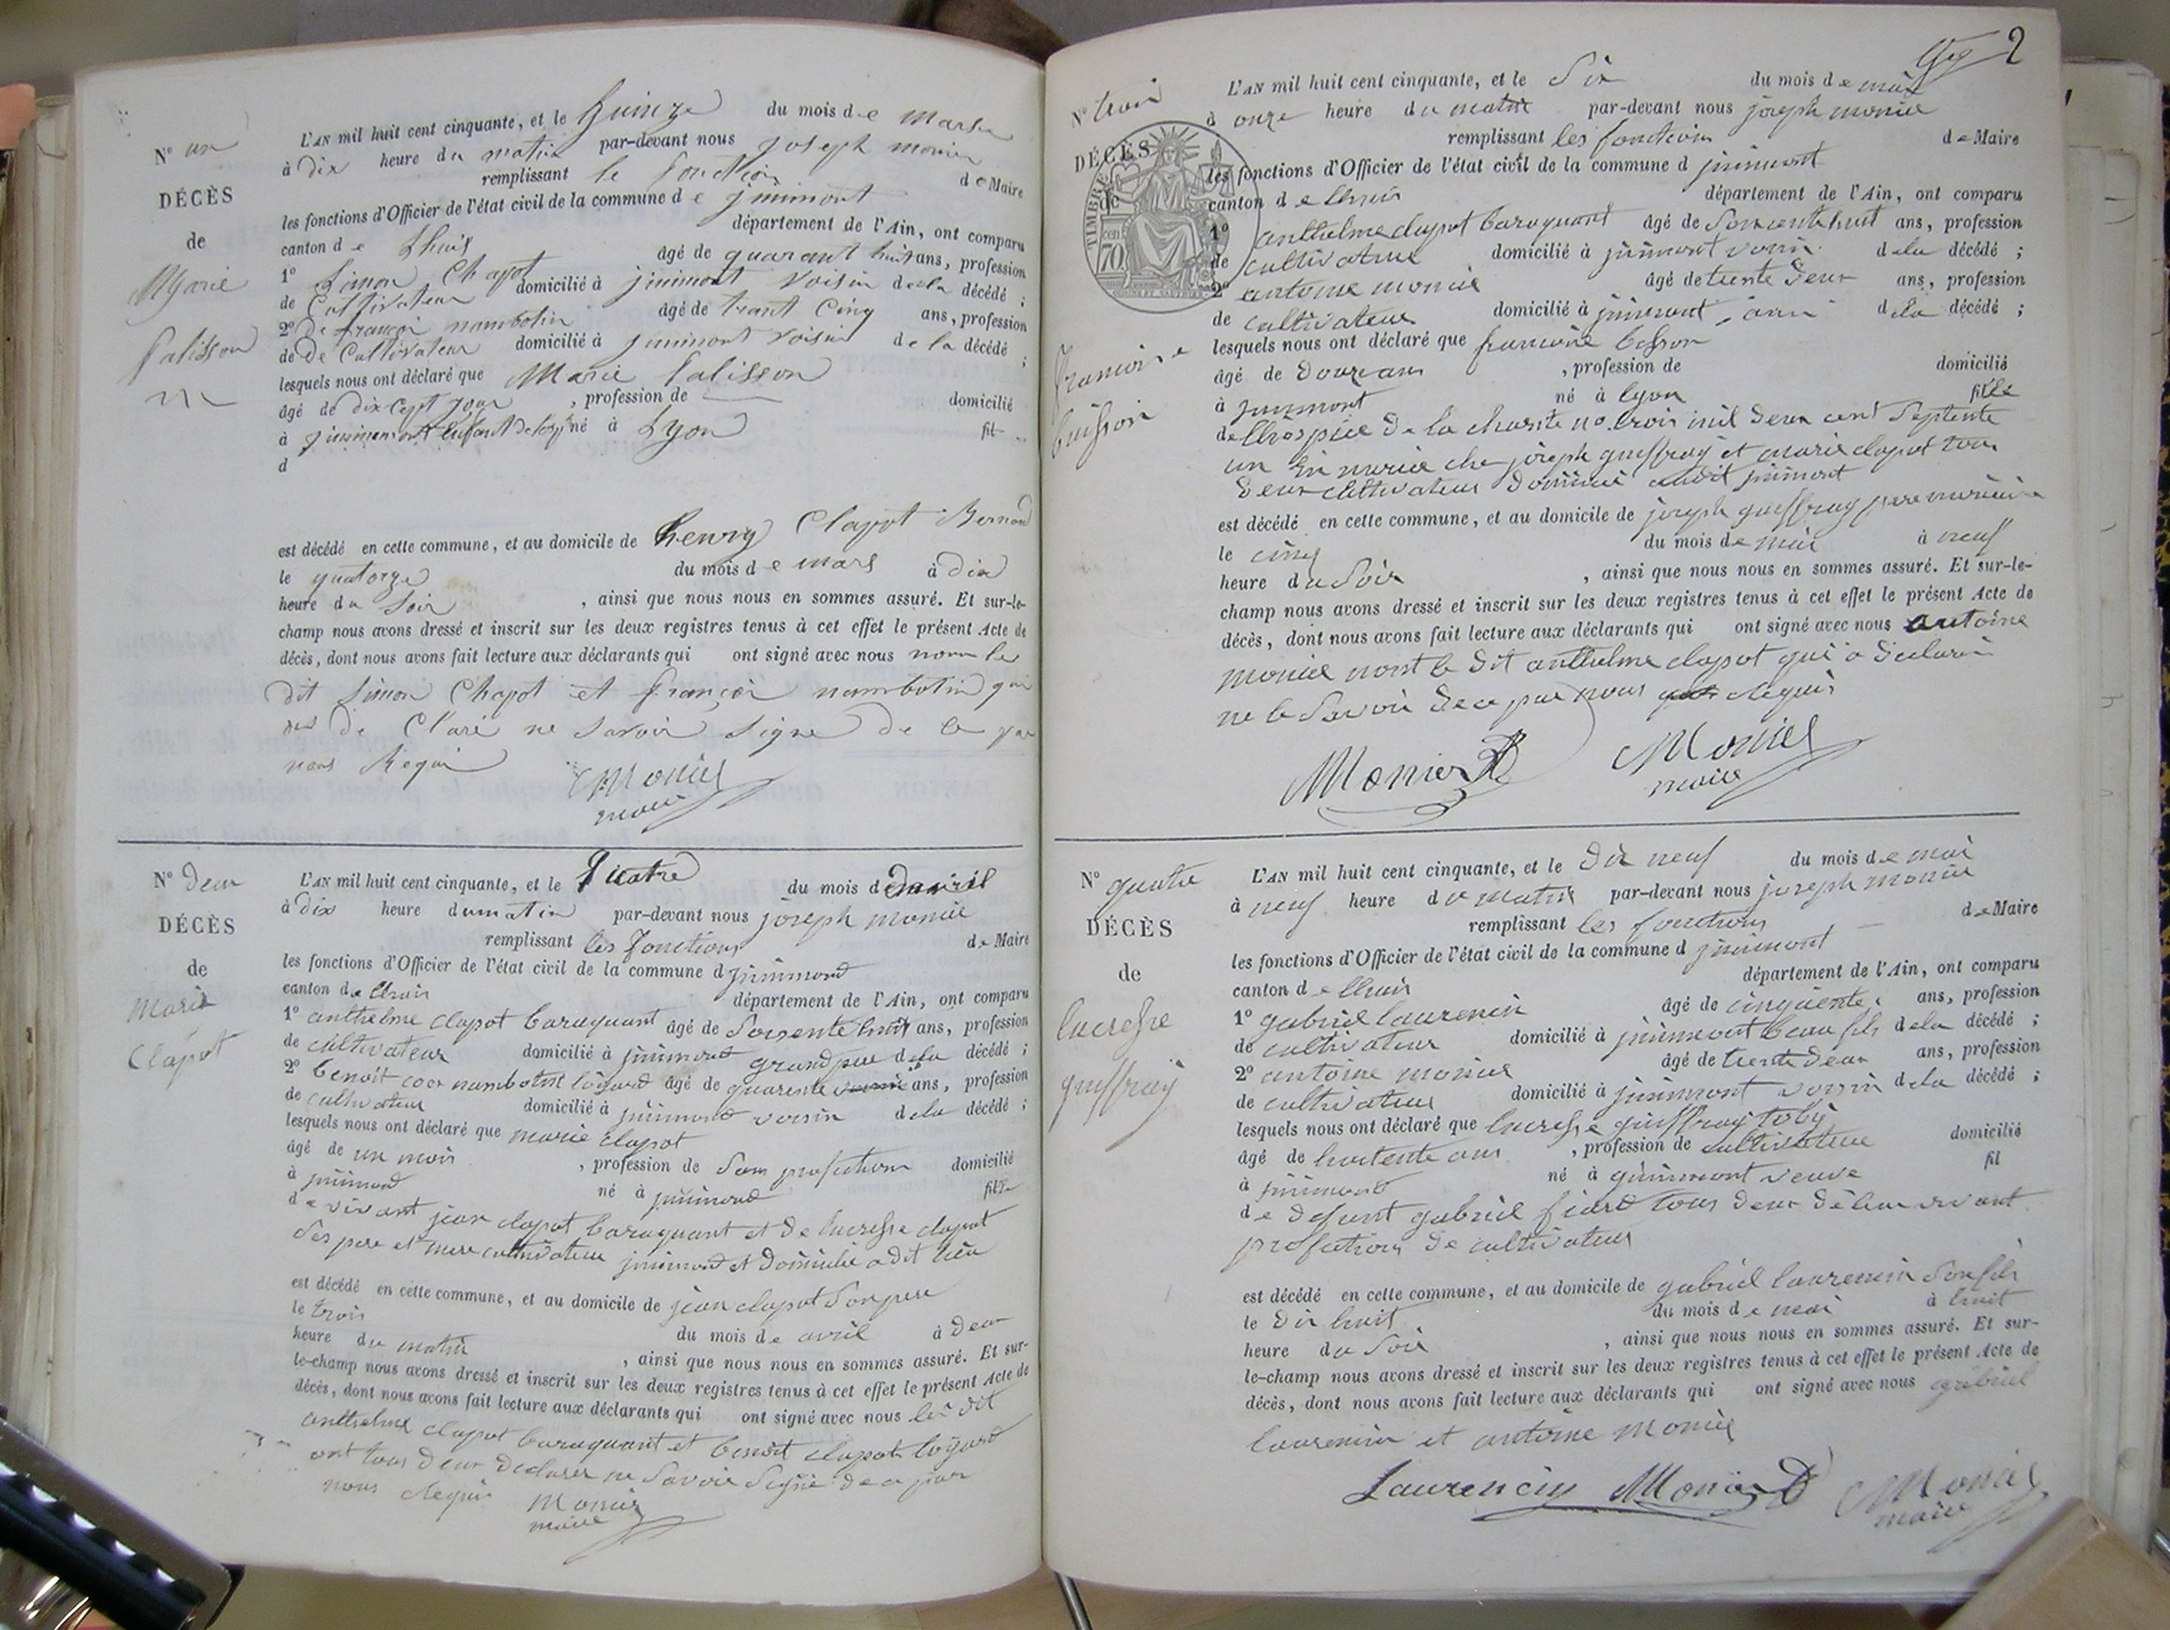 N° un
DÉCÈS
de
Marie
Palisson
L'AN mil huit cent cinquante, et le quinze du mois de mars
à dix heure du matin par-devant nous joseph monier
remplissant le fonction de Maire
les fonctions d'Officier de l'état civil de la commune de jnimont
canton de Lhuis département de l'Ain, ont comparu
1° Simon Chapot âgé de quarant huit ans, profession
de Cultivateur domicilié à jnimont voisin de la décédé ;
2° de françoi nambotin âgé de trant cinq ans, profession
de de Cultivateur domicilié à jnimont voisin de la décédé ;
lesquels nous ont déclaré que Marie Palisson
âgé de dix cept jour , profession de domicilié
à né à Lyon fil
d
est décédé en cette commune, et au domicile de henry Clapot Bernard
le quatorze du mois de mars à dix
heure du soir , ainsi que nous nous en sommes assuré. Et sur-le-
champ nous avons dressé et inscrit sur les deux registres tenus à cet effet le présent Acte de
décès, dont nous avons fait lecture aux déclarants qui ont signé avec nous nom les
dit Simon Chapot et françoi nambotin qui
de Claré ne savoir signe de ce par
nous Requi
Monier
maire
N° deux
DÉCÈS
de
Marie
Clapot
L'AN mil huit cent cinquante, et le quatre du mois d avril
à dix heure du matin par-devant nous joseph monier
remplissant les fonctions de Maire
les fonctions d'Officier de l'état civil de la commune d jnimond
canton de Lhuis département de l'Ain, ont comparu
1° anthelme clapot baraquant âgé de soisente huit ans, profession
de cultivateur domicilié à jnimond grand pere de la décédé ;
2° benoit nambotin âgé de quarente ans, profession
de cultivateur domicilié à jnimond voisin de la décédé ;
lesquels nous ont déclaré que marie clapot
âgé de un mois , profession de sans profections domicilié
à jnimond né à jnimond fille
de vivant jean clapot baraquant et de lucresse clapot
ses pere et mere cultivateur jnimond et domicilié a dit lieu
est décédé en cette commune, et au domicile de jean clapot son pere
le trois du mois de avril à deux
heure du matin , ainsi que nous nous en sommes assuré. Et sur-
le-champ nous avons dressé et inscrit sur les deux registres tenus à cet effet le présent Acte de
décès, dont nous avons fait lecture aux déclarants qui ont signé avec nous les dit
anthelme clapot baraquant et benoit clapot
ont tous deux declarer ne savoir signé de ce par
nous requi Monier
maire
2
N° trois
DÉCÈS
de
TIMBRE
70 cen
francoise
buisson
L'AN mil huit cent cinquante, et le six du mois de mai
à onze heure du matin par-devant nous joseph monier
remplissant les fonctions de Maire
les fonctions d'Officier de l'état civil de la commune d jnimont
canton de Lhuis département de l'Ain, ont comparu
1° anthelme clapot baraquant âgé de soisente huit ans, profession
de cultivateur domicilié à jnimont voisin de la décédé ;
2° antoine monier âgé de trente deux ans, profession
de cultivateur domicilié à jnimont ami de la décédé ;
lesquels nous ont déclaré que francoise
âgé de douze ans , profession de domicilié
à jnimont né à lyon fille
de lhospice de la charité n° trois mil deux cent septente
un En nourice che joseph guiffray et marie clapot tous
deux cultivateur domicilié audit jnimont
est décédé en cette commune, et au domicile de joseph guiffray pere
le cinq du mois de mai à neuf
heure du soir , ainsi que nous nous en sommes assuré. Et sur-le-
champ nous avons dressé et inscrit sur les deux registres tenus à cet effet le présent Acte de
décès, dont nous avons fait lecture aux déclarants qui ont signé avec nous antoine
monier nont le dit anthelme clapot qui a déclaré
ne le savoir de ce par nous requis
Monier
Monier
maire
N° quatre
DÉCÈS
de
lucresse
guiffray
L'AN mil huit cent cinquante, et le dix neuf du mois de mai
à neuf heure du matin par-devant nous joseph monier
remplissant les fonctions de Maire
les fonctions d'Officier de l'état civil de la commune d jnimont
canton de Lhuis département de l'Ain, ont comparu
1° gabriel laurencin âgé de cinquente ans, profession
de cultivateur domicilié à jnimont beau fils de la décédé ;
2° antoine monier âgé de trente deux ans, profession
de cultivateur domicilié à jnimont voisin de la décédé ;
lesquels nous ont déclaré que lucresse guiffray toby
âgé de huitente ans , profession de cultivateur domicilié
à jnimond né à jnimont veuve fil
de defunt gabriel tous deux de leur vivant
profections de cultivateur
est décédé en cette commune, et au domicile de gabriel laurencin son fils
le dix huit du mois de mai à huit
heure du soir , ainsi que nous nous en sommes assuré. Et sur-
le-champ nous avons dressé et inscrit sur les deux registres tenus à cet effet le présent Acte de
décès, dont nous avons fait lecture aux déclarants qui ont signé avec nous gabriel
laurencin et antoine monier
Laurencin Monier Monier
maire